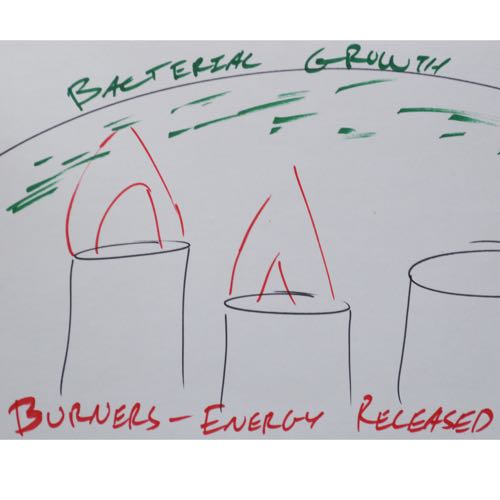 BACTERIAL GROWTH
BURNERS - ENERGY RELEASED